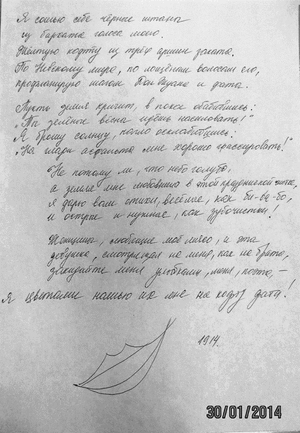 Я сошью себе чёрные штаны
из бархата голоса моего.
Жёлтую кофту из трёх аршин заката.
По Невскому мира, по лощёным полосам его,
профланирую шагом Дон-Жуана и фата.
Пусть земля кричит, в покое обабившись:
"Ты зелёные вёсны идёшь насиловать!"
Я брошу солнцу, нагло осклабившись:
"На глади асфальта мне хорошо грассировать!"
Не потому ли, что небо голубо,
а земля мне любовница в этой праздничной чистке,
я дарю вам стихи, весёлые, как би-ба-бо,
и острые и нужные, как зубочистки!
Женщины, любящие моё мясо, и эта
девушка, смотрящая на меня, как на брата,
закидайте улыбками меня, поэта, –
Я цветами нашью их мне на кофту фата!
1914.
30/01/2014